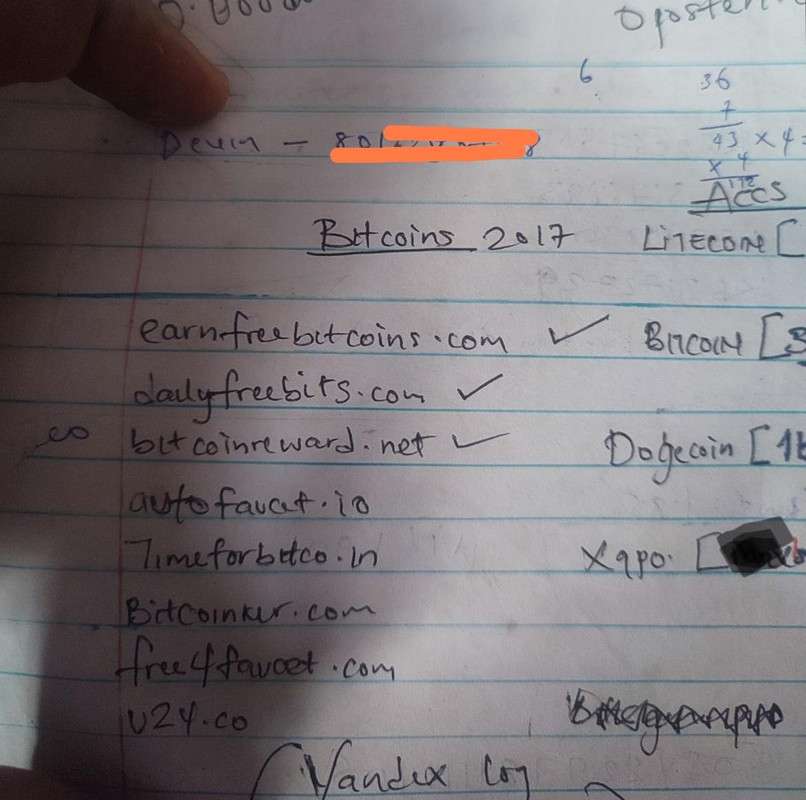 6
36
7
43 x 4
x 4
172
Devin - 801
ACCS
Bitcoins 2017 LITECOINE [
earnfreebitcoins.com ✓ BITCOIN [3
dailyfreebits.com ✓
co bitcoinreward.net ✓ Dogecoin [1b
autofaucet.io
Timeforbitco.in Xapo. [
Bitcoinker.com
free4faucet.com
U24.co
Yandex Log